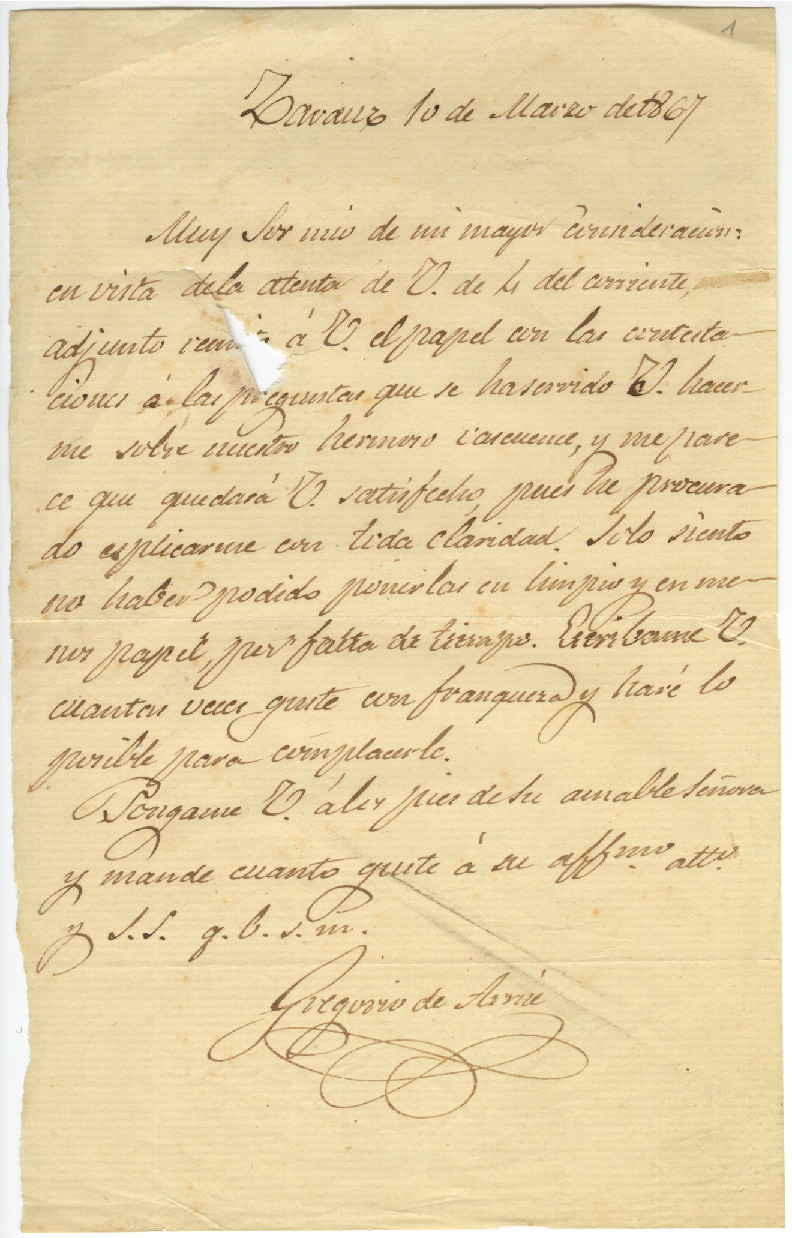 1
Zarauz 10 de Marzo de 1867
Muy Sor mio de mi mayor consideracion:
en vista de la atenta de V. de 4 del corriente,
adjunto á V. el papel con las contesta-
ciones á las preguntas que se ha servido V. hacer-
me sobre nuestro hermoso vascuence, y me pare-
ce que quedará V. satisfecho, pues he procura-
do esplicarme con toda claridad. Solo siento
no haber podido ponerlas en limpio y en me-
nos papel, por falta de tiempo. Escribame V.
cuantas veces guste con franqueza y haré lo
posible para complacerle.
Pongame V. á los pies de su amable Señora
y mande cuanto guste á su affmo. atto.
y S.S. q.b.s.m.
Gregorio de Arrue